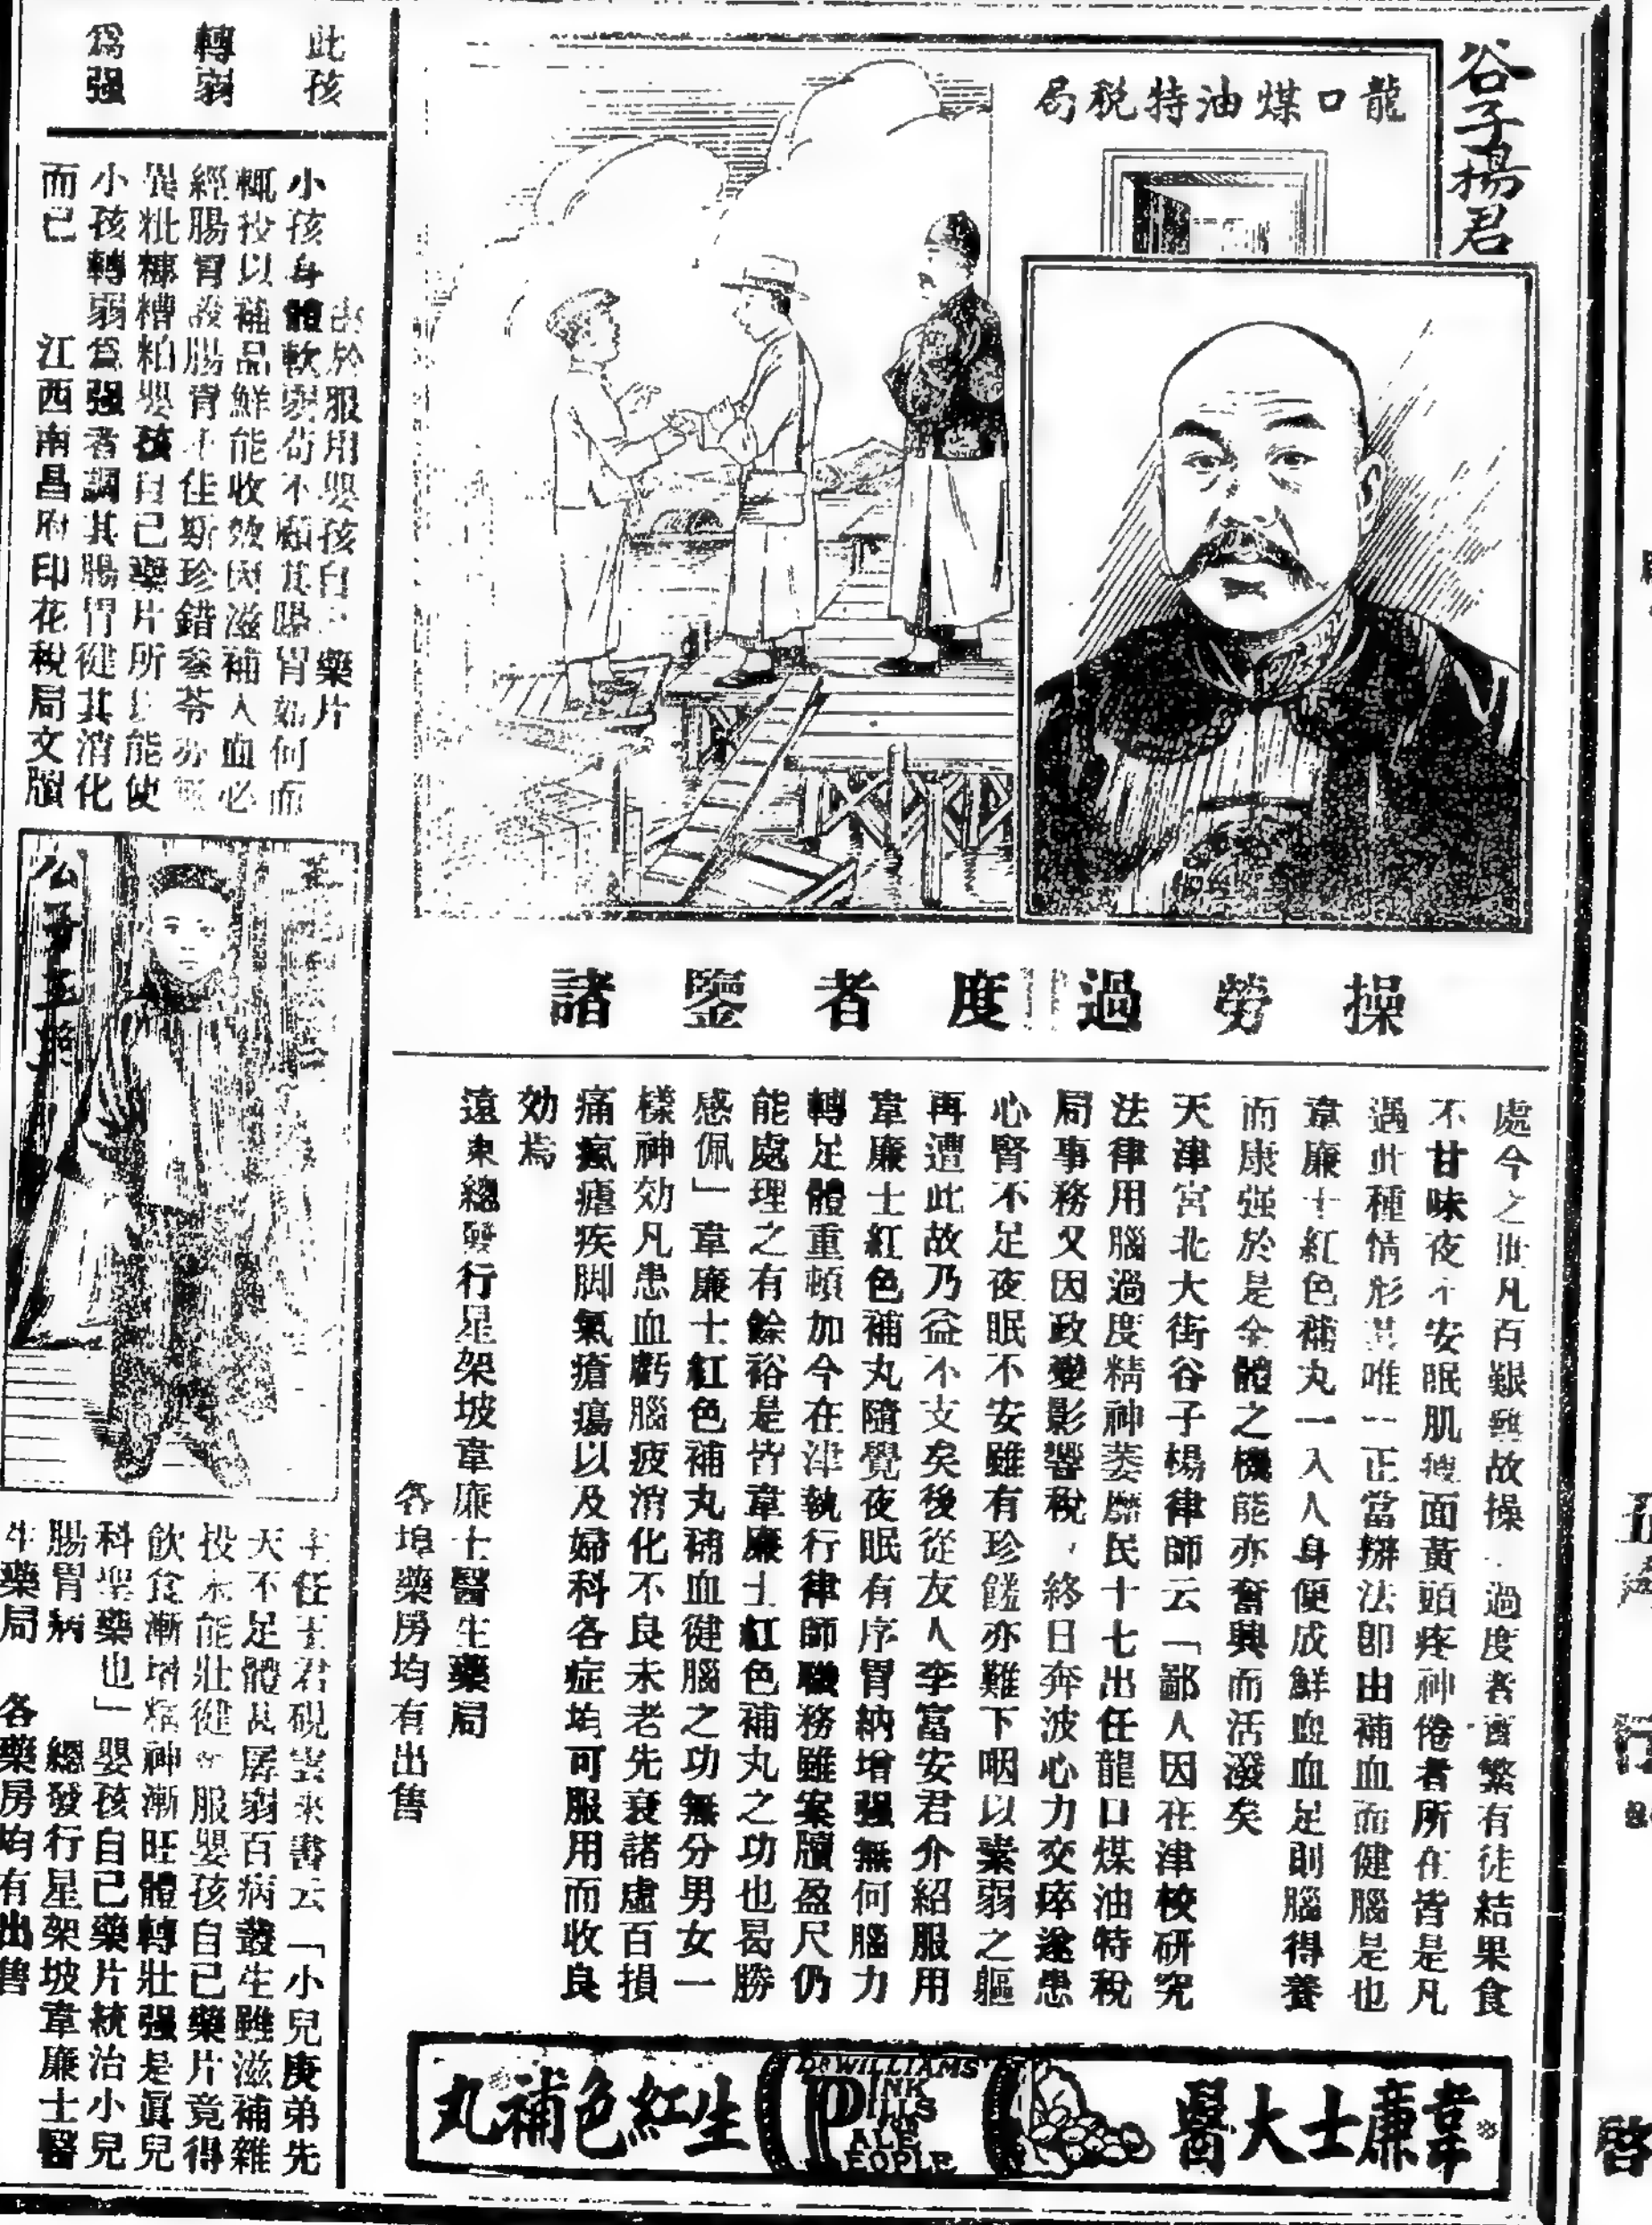 谷子楊君
龍口煤油特稅局
操勞過度者鑒諸
處今之世凡百艱難故操過度者實繁有徒結果食
不甘味夜不安眠肌瘦面黃頭疼神倦者所在皆是凡
遇此種情形其唯一正當辦法卽由補血而健腦是也
韋廉士紅色補丸一入人身便成鮮血血足則腦得養
而康强於是全體之機能亦奮興而活潑矣
天津宮北大街谷子楊律師云「鄙人因在津校研究
法律用腦過度精神萎靡民十七出任龍口煤油特稅
局事務又因政變影響稅終日奔波心力交瘁遂患
心腎不足夜眠不安雖有珍饈亦難下咽以素弱之軀
再遭此故乃益不支矣後從友人李富安君介紹服用
韋廉士紅色補丸隨覺夜眠有序胃納增强無何腦力
轉足體重頓加今在津執行律師職務雖案牘盈尺仍
能處理之有餘裕是皆韋廉士紅色補丸之功也曷勝
感佩」韋廉士紅色補丸補血健腦之功無分男女一
樣神効凡患血虧腦疲消化不良未老先衰諸虛百損
痛瘋瘧疾脚氣瘡瘍以及婦科各症均可服用而收良
効焉
遠東總發行星架坡韋廉士醫生藥局
各埠藥房均有出售
韋廉士大醫
DR WILLIAMS'
PINK
PILLS
PALE
PEOPLE
生紅色補丸
此孩
轉弱
爲强
由於服用嬰孩自己藥片
小孩身體軟弱苟不顧其腸胃如何而
輒投以補品鮮能收效因滋補入血必
經腸胃設腸胃不佳斯珍錯參苓亦無
異粃糠糟粕嬰孩自己藥片所以能使
小孩轉弱爲强者調其腸胃健其消化
而已　江西南昌府印花稅局文牘
公子
主任王君硯雲來書云「小兒庚弟先
天不足體甚孱弱百病叢生雖滋補雜
投未能壯健服嬰孩自己藥片竟得
飲食漸增精神漸旺體轉壯强是眞兒
科聖藥也」嬰孩自己藥片統治小兒
腸胃病　總發行星架坡韋廉士醫
生藥局　各藥房均有出售
行
啓